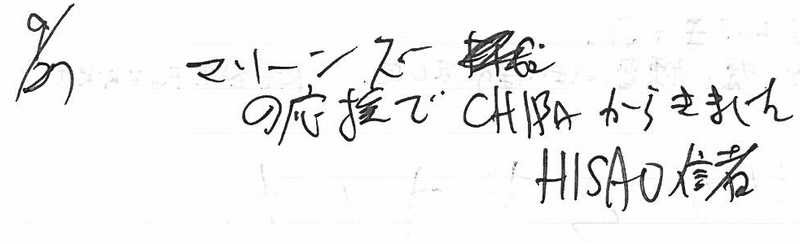 9/27 マリーンズ
の応援で CHIBAからきました
HISAO信者